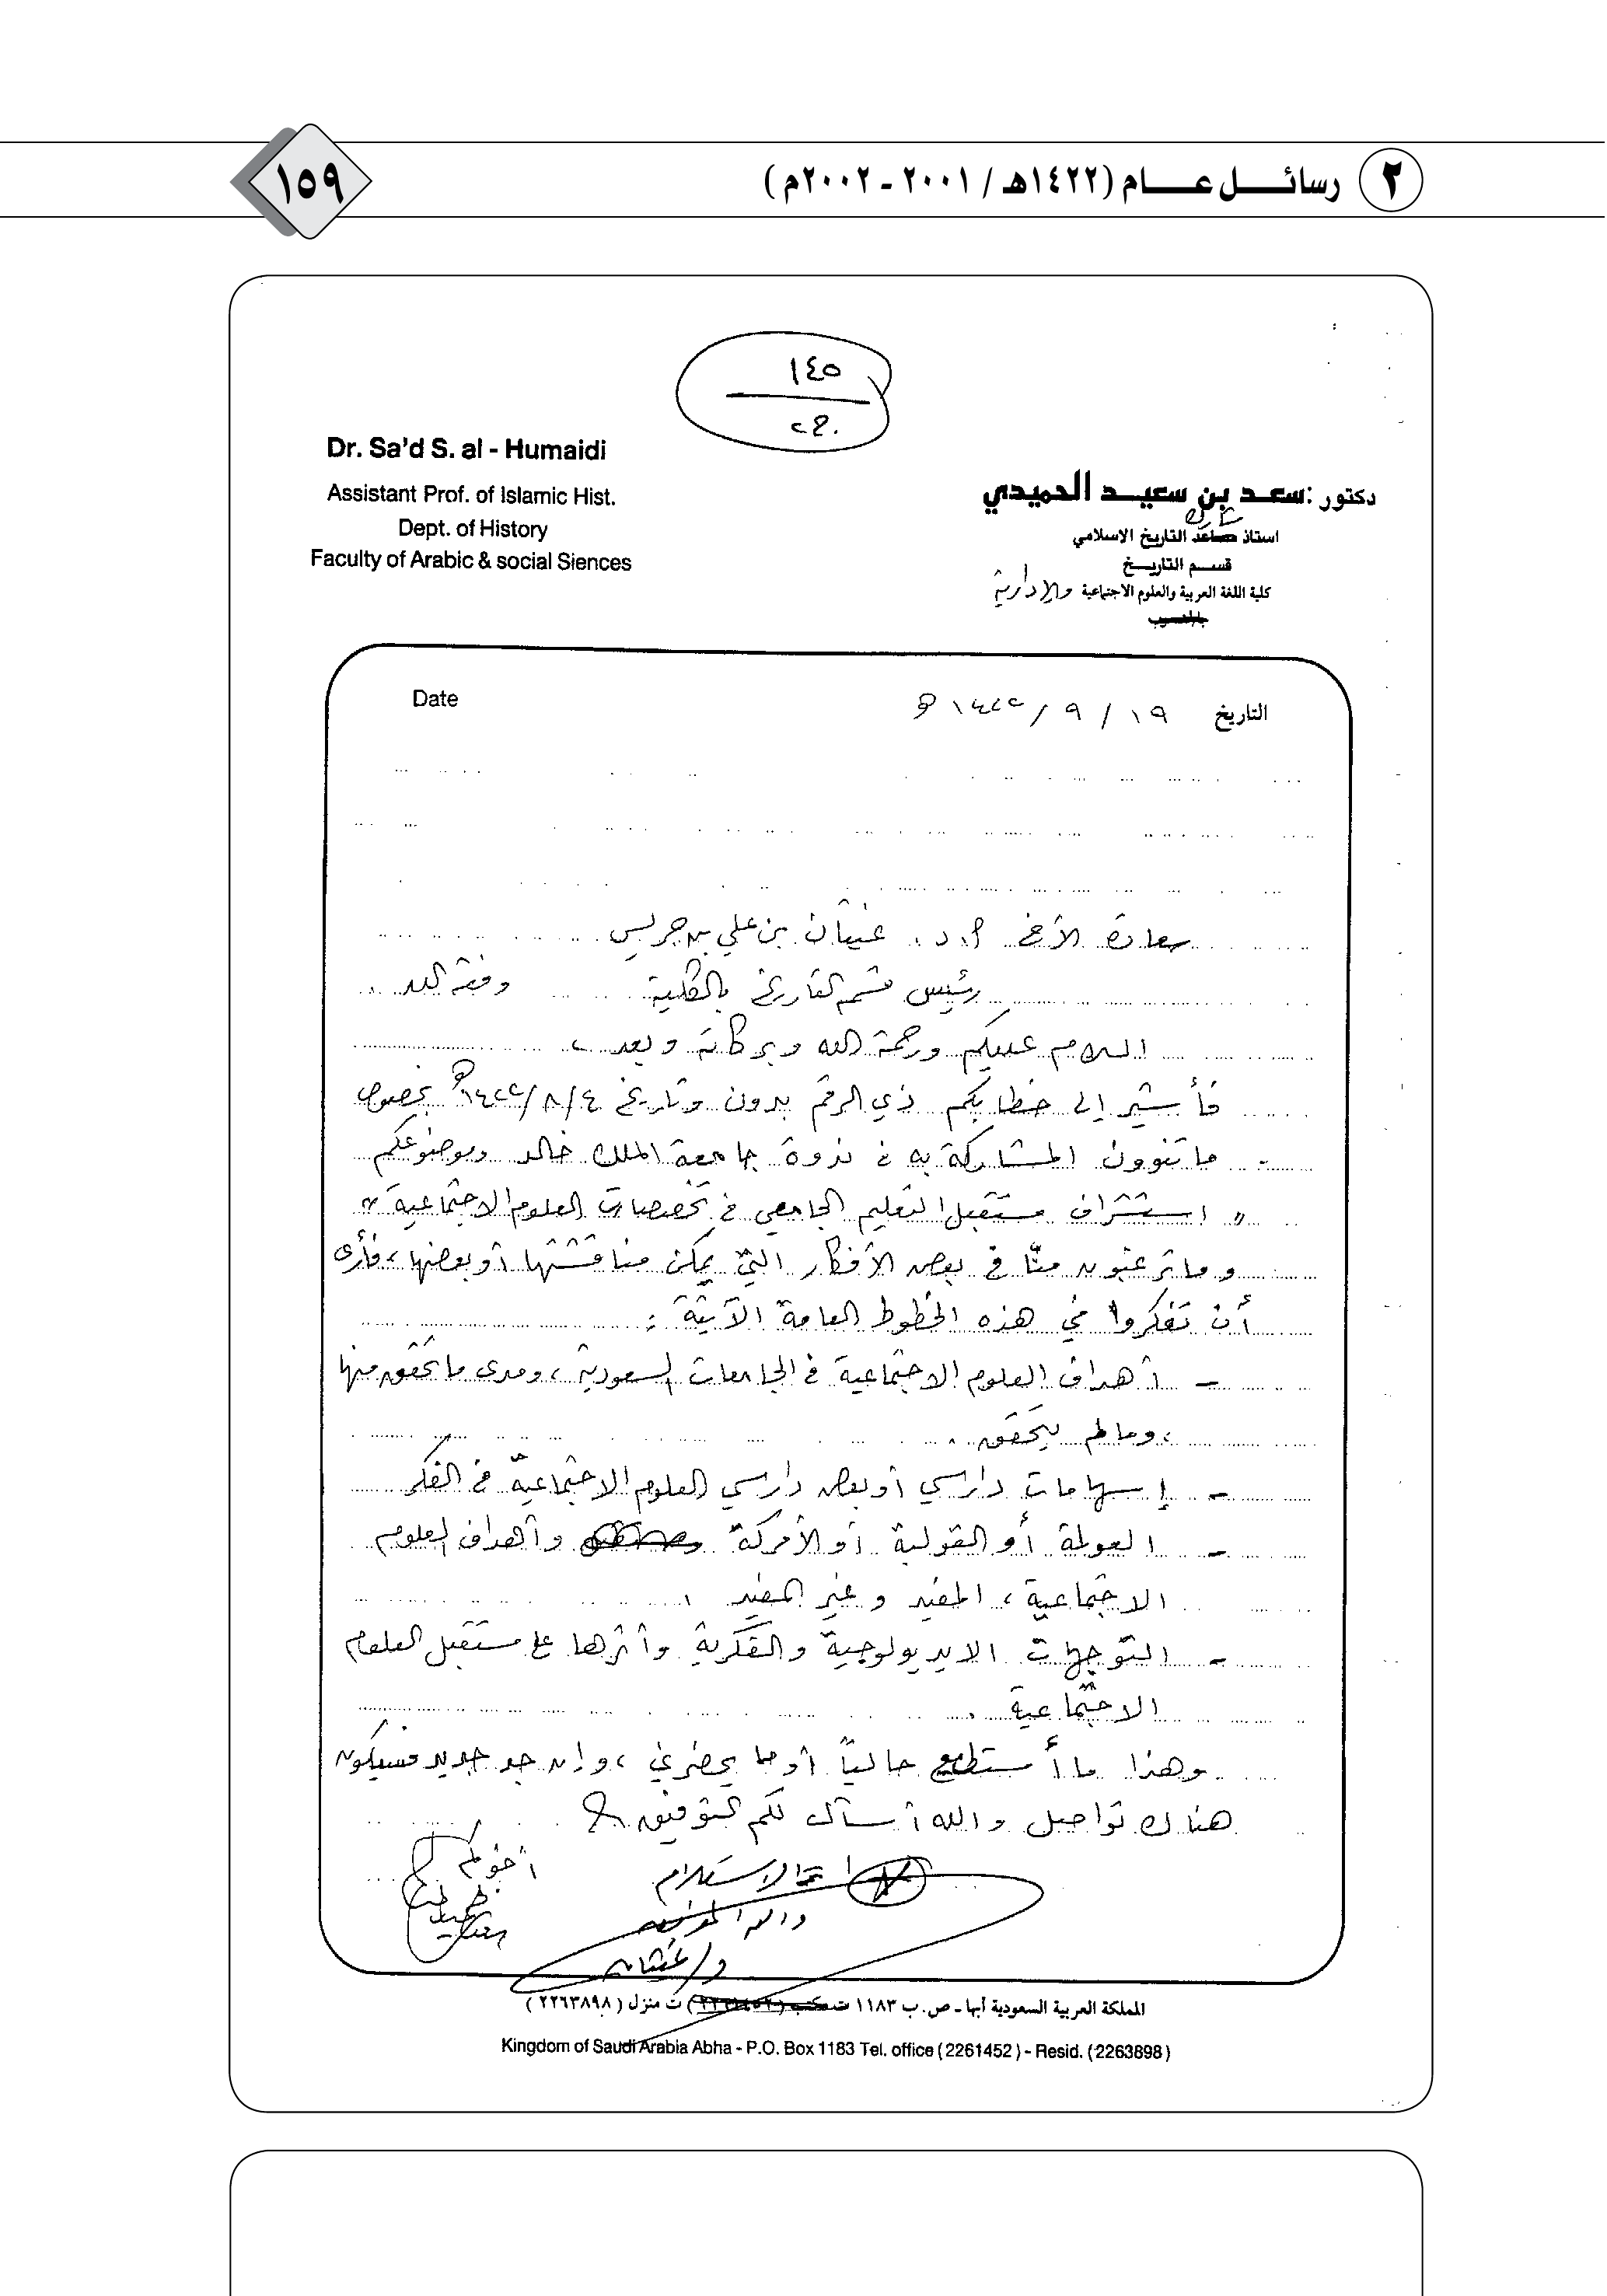 ٢ رسائل عام (١٤٢٢هـ / ٢٠٠١ - ٢٠٠٢م)
١٥٩
١٤٥
Dr. Sa'd S. al - Humaidi
Assistant Prof. of Islamic Hist.
Dept. of History
Faculty of Arabic & social Siences
دكتور : سعد بن سعيد الحميدي
استاذ مشارك التاريخ الاسلامي
قسم التاريخ
كلية اللغة العربية والعلوم الاجتماعية والإدارية
التاريخ ١٩ / ٩ / ١٤٢٢ هـ
Date
سعادة الأخ أ. د. غيثان بن علي بن جريس
رئيس قسم التاريخ بالكلية وفقه الله
السلام عليكم ورحمة الله وبركاته وبعد ،
فأشير إلى خطابكم ذي الرقم بدون وتاريخ ١٤٢٢/٨/٤هـ بخصوص
ما تنوون المشاركة به في ندوة جامعة الملك خالد وموضوعكم
" استشراف مستقبل التعليم الجامعي في تخصصات العلوم الاجتماعية "
وما ترغبون منّا في بعض الأفكار التي يمكن مناقشتها أو بعضها ، فأرى
أن تفكروا في هذه الخطوط العامة الآتية :
- أهداف العلوم الاجتماعية في الجامعات السعودية ، ومدى ما تحقق منها
، وما لم يتحقق .
- إسهامات دارسي أو بعض دارسي العلوم الاجتماعية في الفكر
- العولمة أو القولبة أو الأمركة وأهداف العلوم
الاجتماعية ، المفيد وغير المفيد .
- التوجهات الايديولوجية والفكرية وأثرها على مستقبل العلوم
الاجتماعية .
وهذا ما أستطيع حالياً أو ما يحضرني ، وإن جد جديد فسيكون
هناك تواصل والله أسأل لكم التوفيق
أخوكم
تم الاستلام
والله الموفق
د/ غيثان
المملكة العربية السعودية أبها - ص. ب ١١٨٣ ت مكتب (٢٢٦١٤٥٢) ت منزل (٢٢٦٣٨٩٨)
Kingdom of Saudi Arabia Abha - P.O. Box 1183 Tel. office (2261452) - Resid. (2263898)